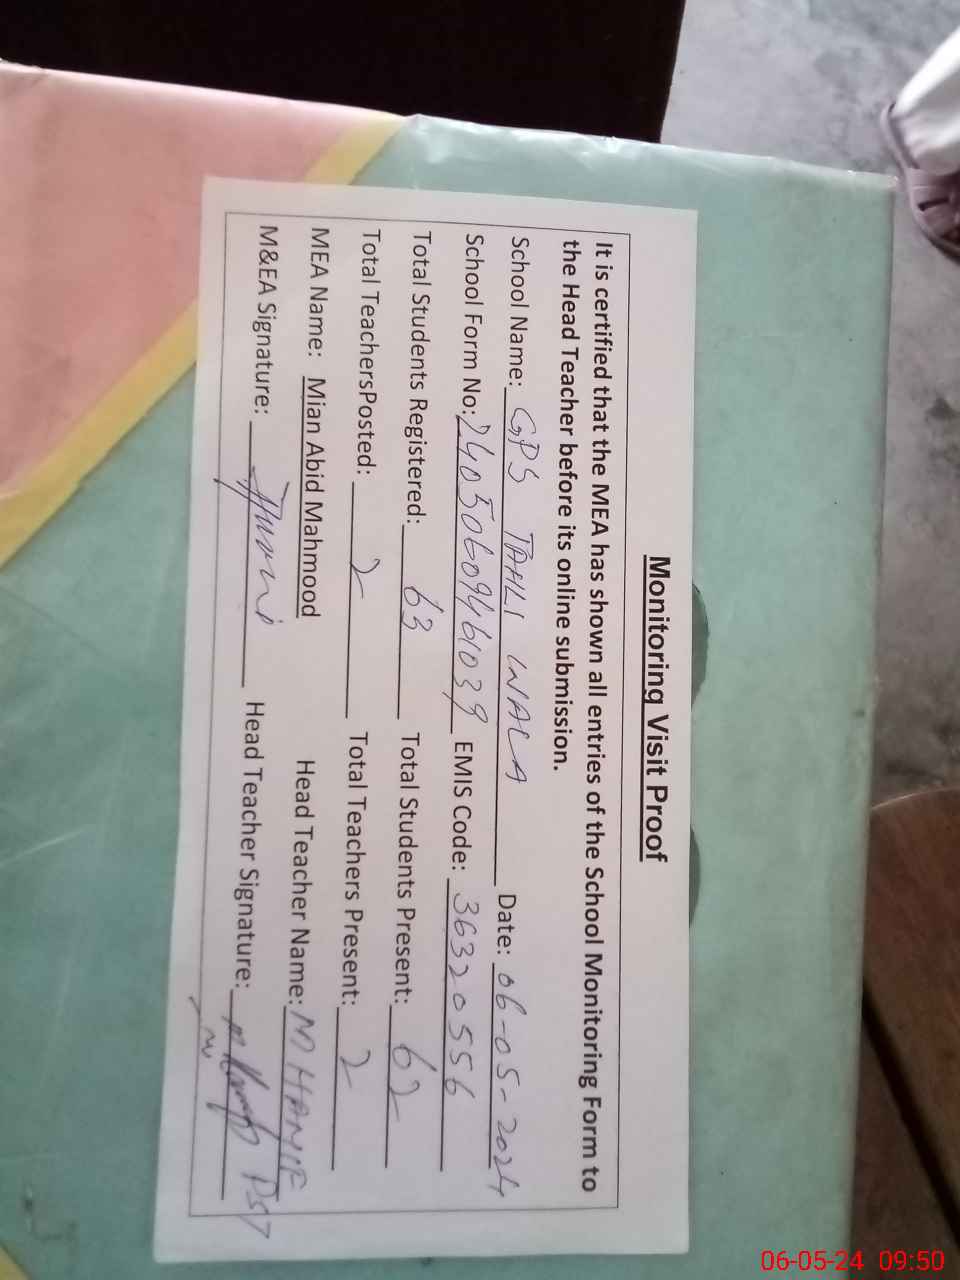 Monitoring Visit Proof
It is certified that the MEA has shown all entries of the School Monitoring Form to
the Head Teacher before its online submission.
School Name: GPS TAHLI WALA Date: 06-05-2024
School Form No: 24050609461039 EMIS Code: 36320556
Total Students Registered: 63 Total Students Present: 62
Total TeachersPosted: 2 Total Teachers Present: 2
MEA Name: Mian Abid Mahmood Head Teacher Name: M HANIF
M&EA Signature: Head Teacher Signature: PST
06-05-24 09:50